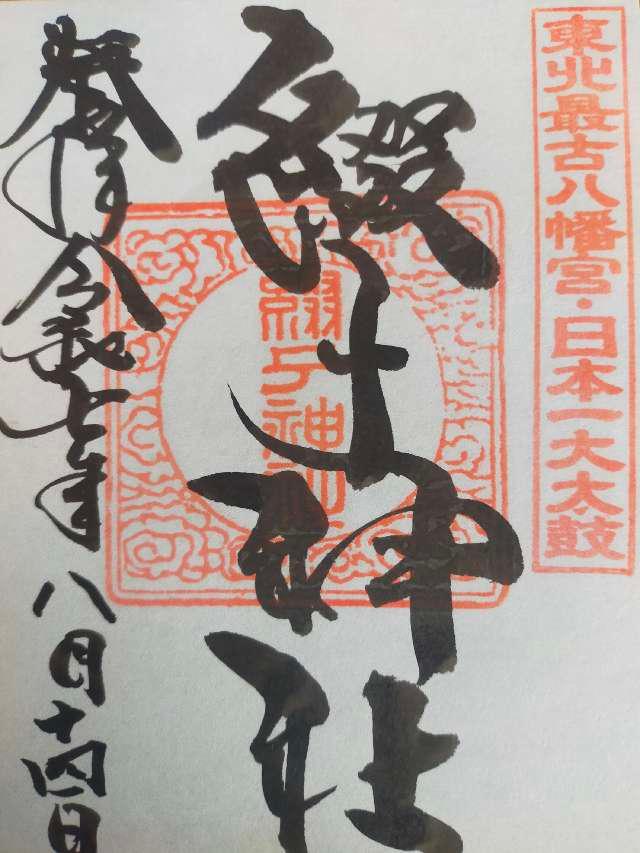 東北最古八幡宮・日本一大太鼓
綴子神社
綴子神社
奉拝 令和七年 八月十四日